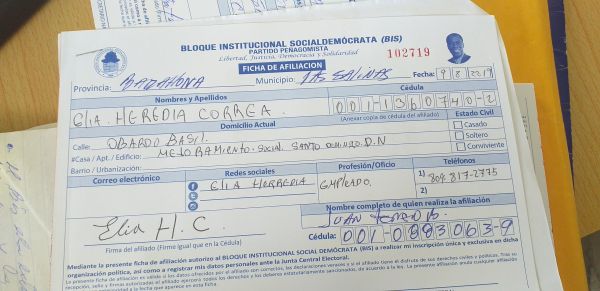 BLOQUE INSTITUCIONAL SOCIALDEMÓCRATA (BIS)
PARTIDO PEÑAGOMISTA
Libertad, Justicia, Democracia y Solidaridad
102719
FICHA DE AFILIACION
Provincia: BARAHONA Municipio: LAS SALINAS Fecha: 9 8
Nombres y Apellidos Cédula
ELIA HEREDIA CORREA 001-1360740-2
(Anexar copia de cédula del afiliado)
Domicilio Actual Estado Civil
Calle: OBARDO BASIL Casado
#Casa / Apt. / Edificio: MEJORAMIENTO SOCIAL SANTO DOMINGO D.N Soltero
Barrio / Urbanización: Conviviente
Correo electrónico Redes sociales Profesión/Oficio Teléfonos
ELIA HERREDIA EMPLEADO 1) 809 817-2775
2)
Nombre completo de quien realiza la afiliación
Elia H. C. JUAN
Firma del afiliado (Firme igual que en la Cédula) Cédula: 001-0883063-9
Mediante la presente ficha de afiliación autorizo al BLOQUE INSTITUCIONAL SOCIAL DEMÓCRATA (BIS) a realizar mi inscripción única y exclusiva en dicha
organización política, así como a registrar mis datos personales ante la Junta Central Electoral.